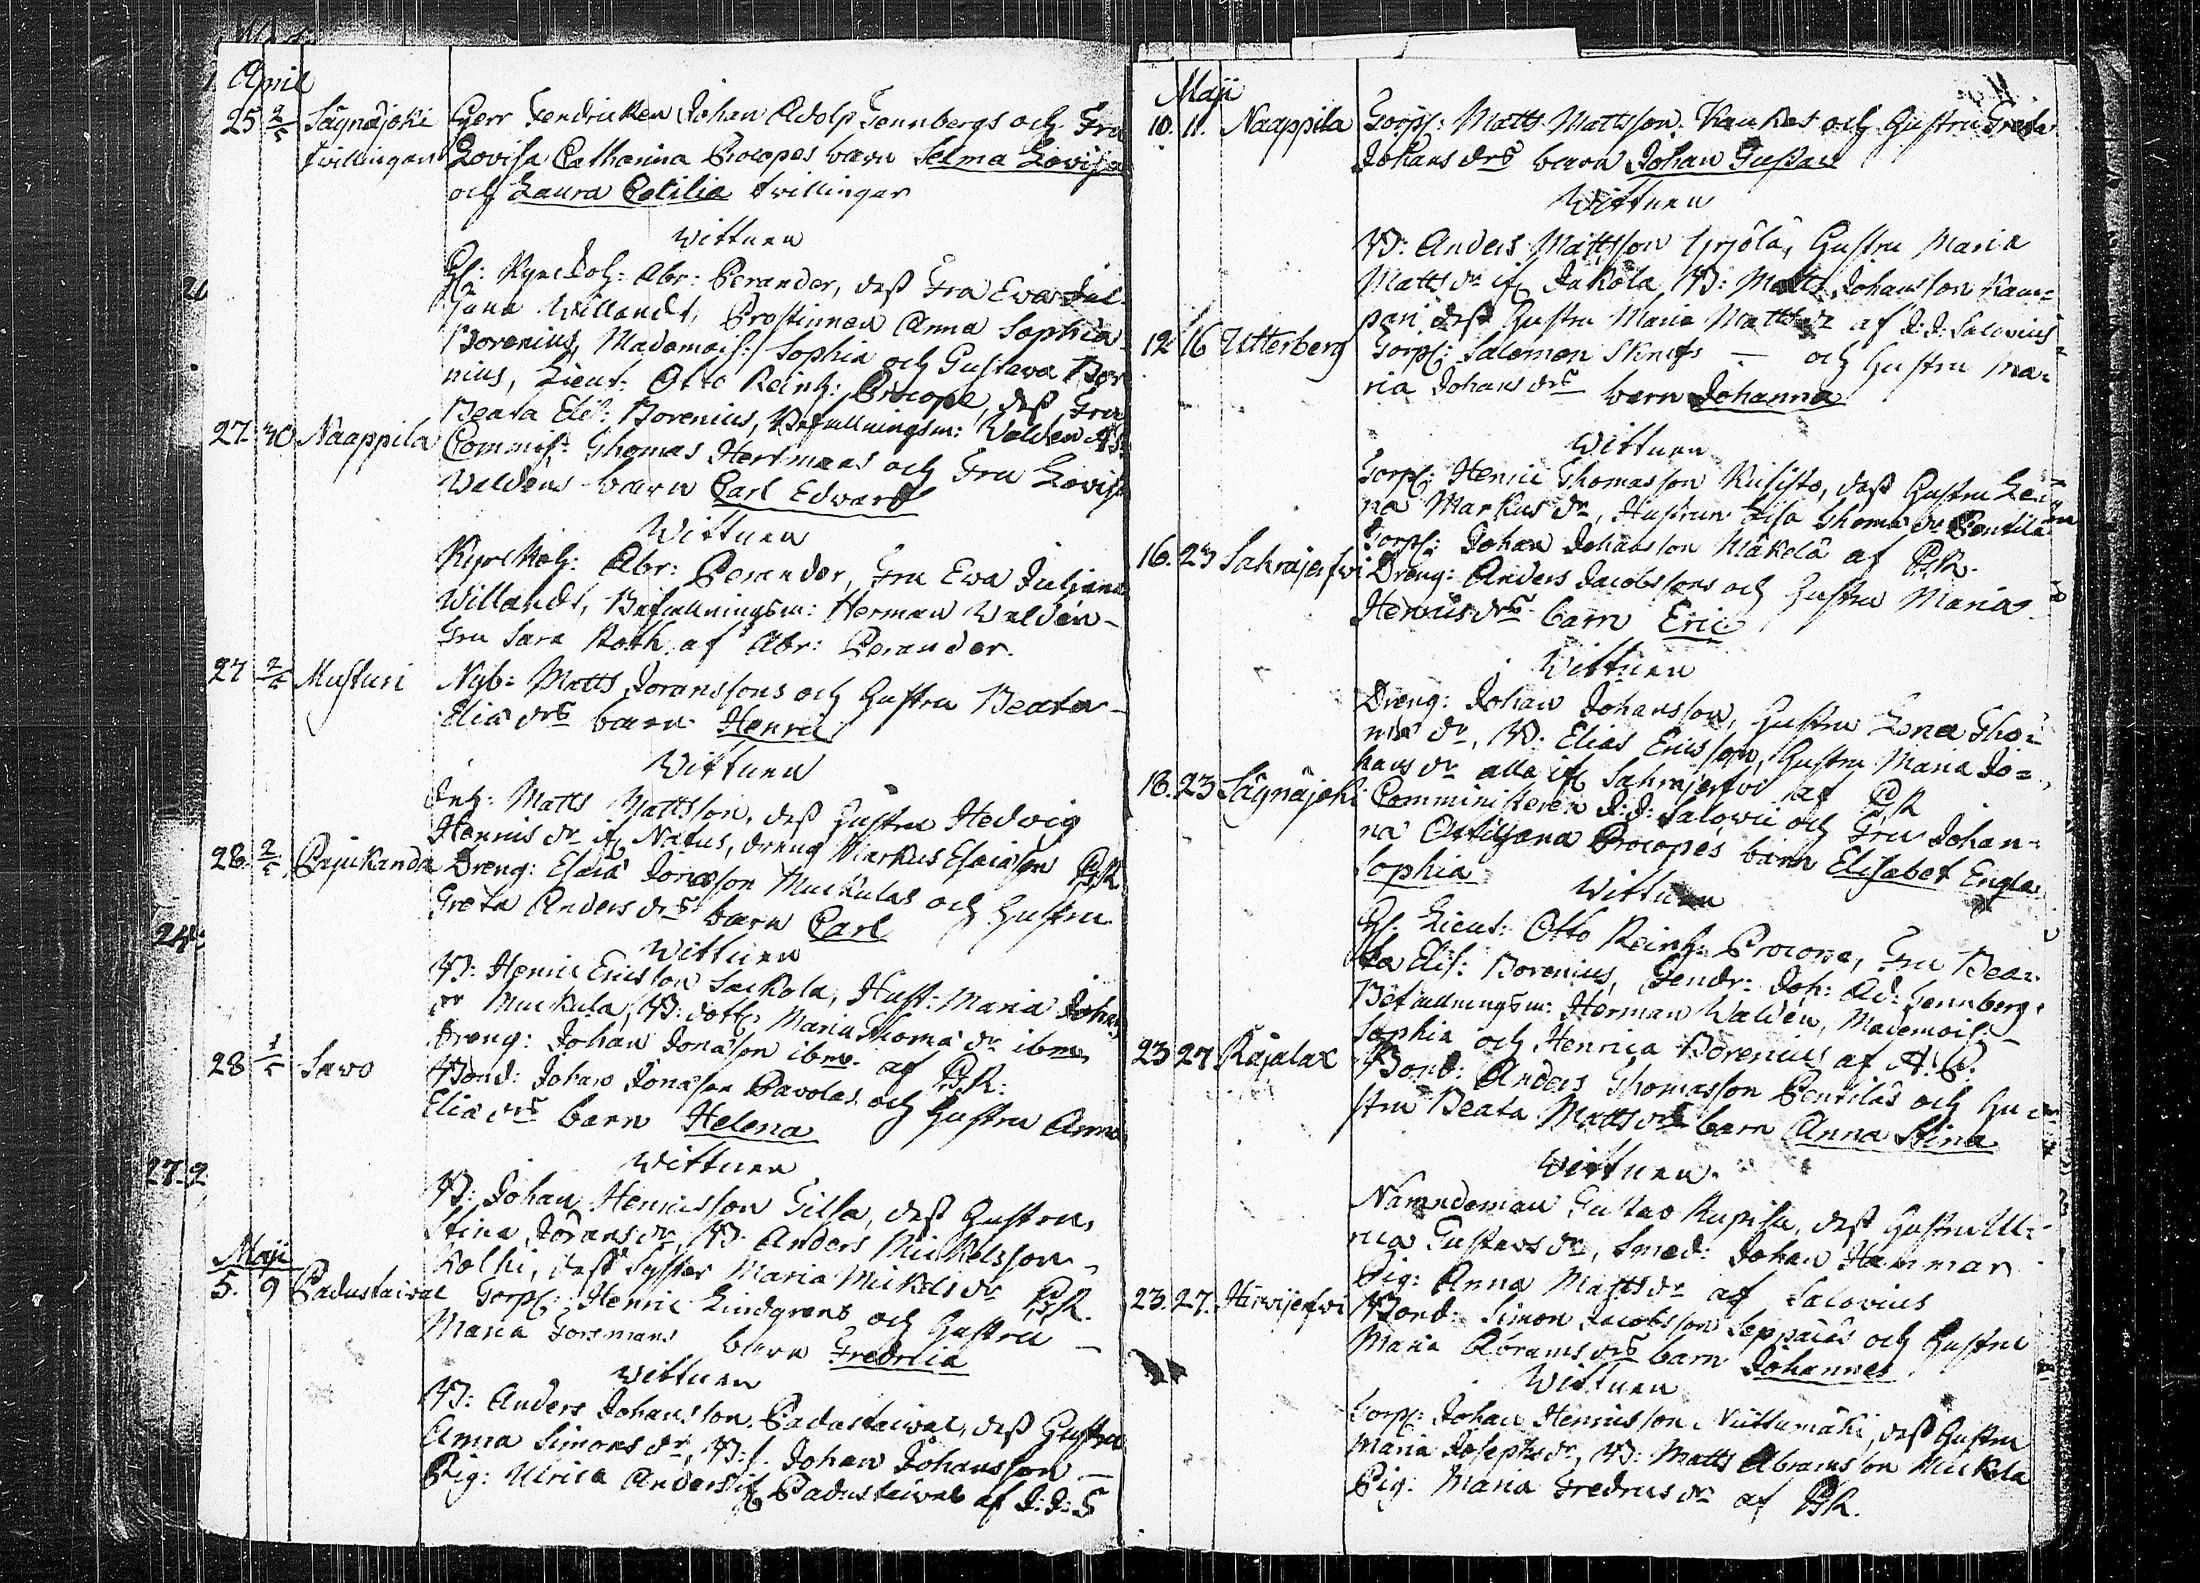 April
25 2/5 Säynäjoki Herr Fendricken Johan Adolp Fonnbergs och Fru
tvillingar Lovisa Catharina Procopes barn Selma Lovisa
och Laura Cecilia tvillingar
Wittnen
H: Kyrckoh: Abr: Perander, dess Fru Ewa Jul-
jana Willandt, Prostinnan Anna Sophia
Borenius, Mademois: Sophia och Gustava Bore
nius, Lieut: Otto Reinh: Procope, dess Fru
Beata Elis: Borenius, Befallningsm: Walden A:P:
27. 30 Naappila Commiss: Thomas Hertmans och Fru Lovisa
Waldens barn Carl Edward
Wittnen
Kyrckoh: Abr: Perander, Fru Ewa Juliana
Willandt, Befallningsm: Herman Waldén
Fru Sara Roth af Abr: Perander.
27 2/5 Musturi Nyb: Matts Joranssons och Hustru Beata
Eliæ drs barn Henric
Wittnen
Inh: Matts Mattsson, dess Hustru Hedvig
Henrics dr ifr Natus, dreng Markus Esaiæson P.R.
28. 2/5 Pajukanda Dreng: Esaiæ Jonæson Muckulas och Hustru
Greta Anders drs barn Carl
Wittnen
B: Henric Ericsson Sackola, Hust: Maria Johans
dr Muckula, B: dott: Maria Thomæ dr ibm,
dreng: Johan Jonæson ibm. af P.R.
28 1/5 Savo Bond: Johan Jonæson Pavolas och Hustru Anna
Eliæ drs barn Helena
Wittnen
B: Johan Henricsson Gilla, dess Hustru
Stina Jörans dr, B: Anders Mickelsson
Kolhi, dess Syster Maria Mickels dr P.R.
Maji
5. 9 Padustaival Torp: Henric Lindgrens och Hustru
Maria Forsmans barn Fredrica
Wittnen
B: Anders Johansson Padustaival, dess Hustru
Anna Simons dr, B: s. Johan Johansson
Pig: Ulrica Anders ifr Padustaival af J:J:S
Maji
10. 11. Naappila Torp: Matts Mattsson Kaukas och Hustru Greta
Johans drs barn Johan Gustav
Wittnen
B: Anders Mattsson Yrjölä, Hustru Maria
Matts dr ifr Jakola, B: Matts Johansson Kam-
pari dess Hustru Maria Matts dr af J:J: Salovius
12 16 Utterberg Torp: Salomon Sknifs och Hustru Ma-
ria Johans drs barn Johanna
Wittnen
Torp: Henric Thomasson Kusisto, dess Hustru Le-
na Markus dr, Hustrun Lisa Thomæ dr Pentilä
Torp: Johan Johansson Mäkelä af P.R.
16. 23 Sahrajerfvi Dreng: Anders Jacobssons och Hustru Maria
Henrics drs barn Eric
Wittnen
Dreng: Johan Johansson, Hustru Lena Tho-
mæ dr, B: Elias Ericsson, Hustru Maria Jo-
hans dr alla ifr Sahrajerfvi af P.R
18. 23 Säynäjoki Comministeren J:J: Salovii och Fru Johan-
na Procopes barn Elisabet Engla
Sophia
Wittnen
H: Lieut: Otto Reinh: Procope, Fru Bea-
ta Elis: Borenius, Fendr: Joh: Ad: Fonnberg
Befallningsm: Herman Waldén, Mademois:
Sophia och Henrica Borenius af A. P.
23 27 Rajalax Bond: Anders Thomasson Pentiläs och Hu-
stru Beata Matts drs barn Anna Stina
Wittnen
Nämndeman Gustav Rupisa, dess Hustru Ul-
rica Gustavs dr, Smed: Johan Hammar
Pig: Anna Matts dr af Salovius
23. 27. Hirvijerfvi Bond: Simon Jacobsson Seppäläs och Hustru
Maria Abrams drs barn Johannes
Wittnen
Torp: Johan Henricsson Niittumäki, dess Hustru
Maria Josephs dr, B: Matts Abramsson Mickola
Pig: Maria Fredrics dr af P.R.
24
27. 2